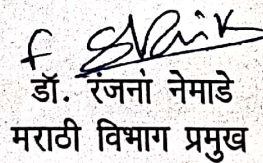 डॉ. रंजना नेमाडे
मराठी विभाग प्रमुख